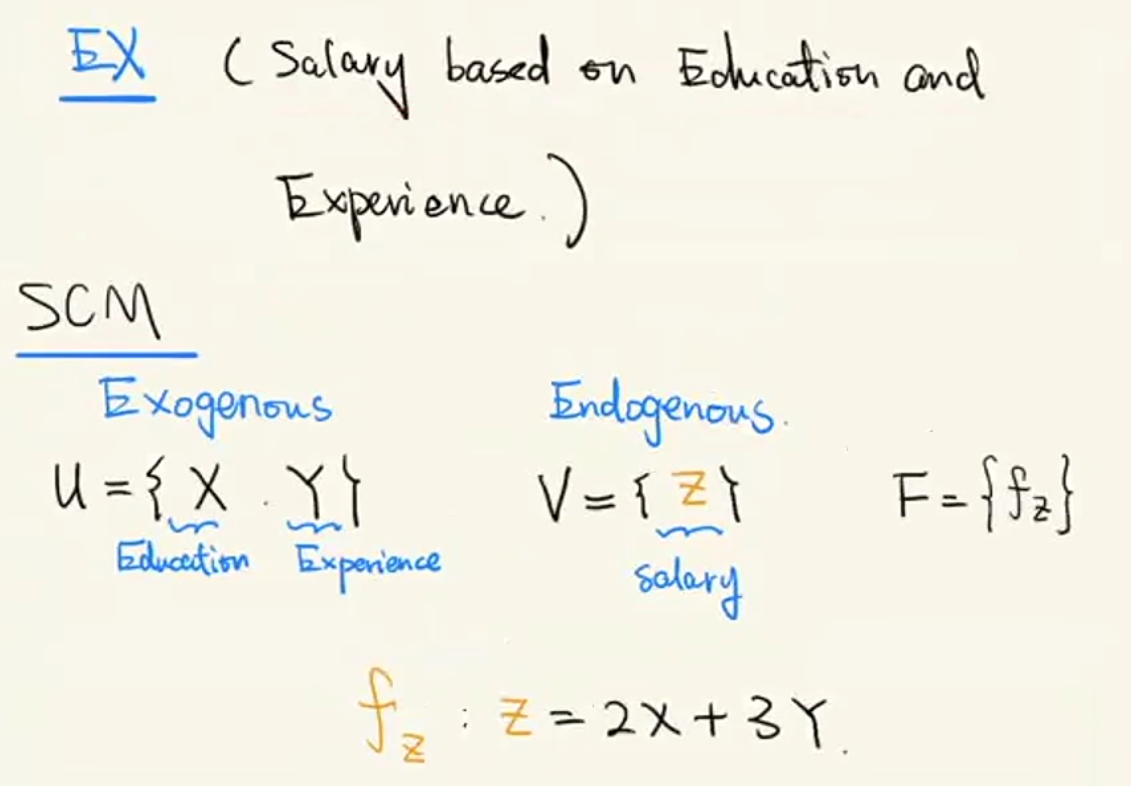 EX (Salary based on Education and
Experience.)
SCM
Exogenous Endogenous.
U = { X . Y } V = { Z } F = {f_z}
Education Experience salary
f_z : Z = 2X + 3Y.